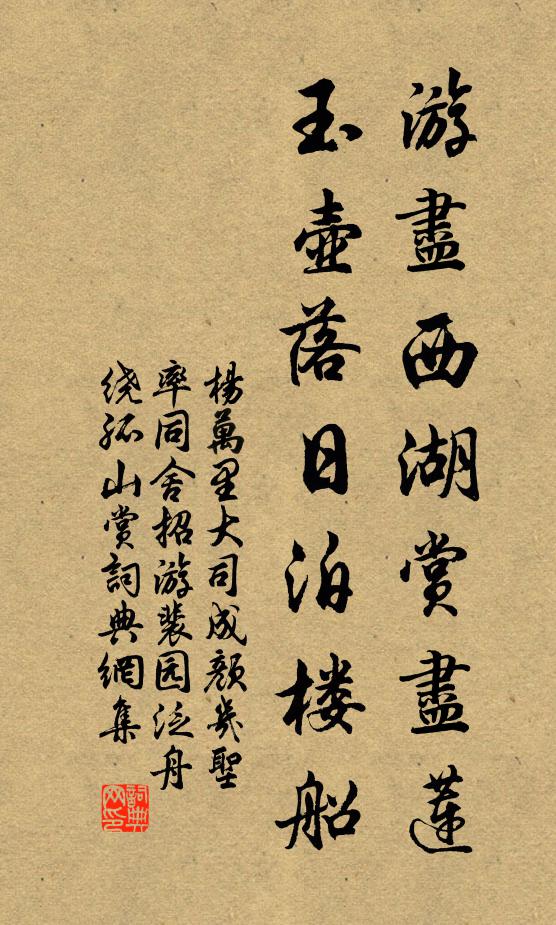 游盡西湖賞盡蓮
玉壺落日泊楼船
楊萬里大司成颜幾聖
率同舍招游裴园泛舟
绕孤山賞詞典網集
詞典網印